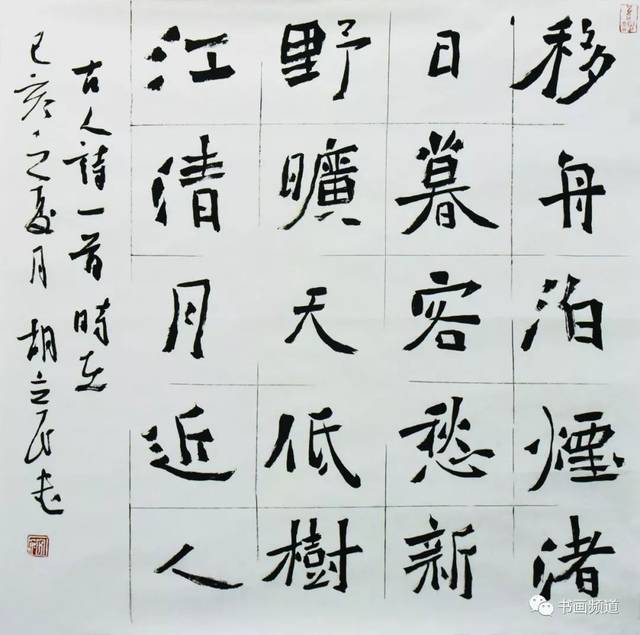 移舟泊煙渚
日暮客愁新
野曠天低樹
江清月近人
古人詩一首時在
己亥之夏月胡立民书
书画频道